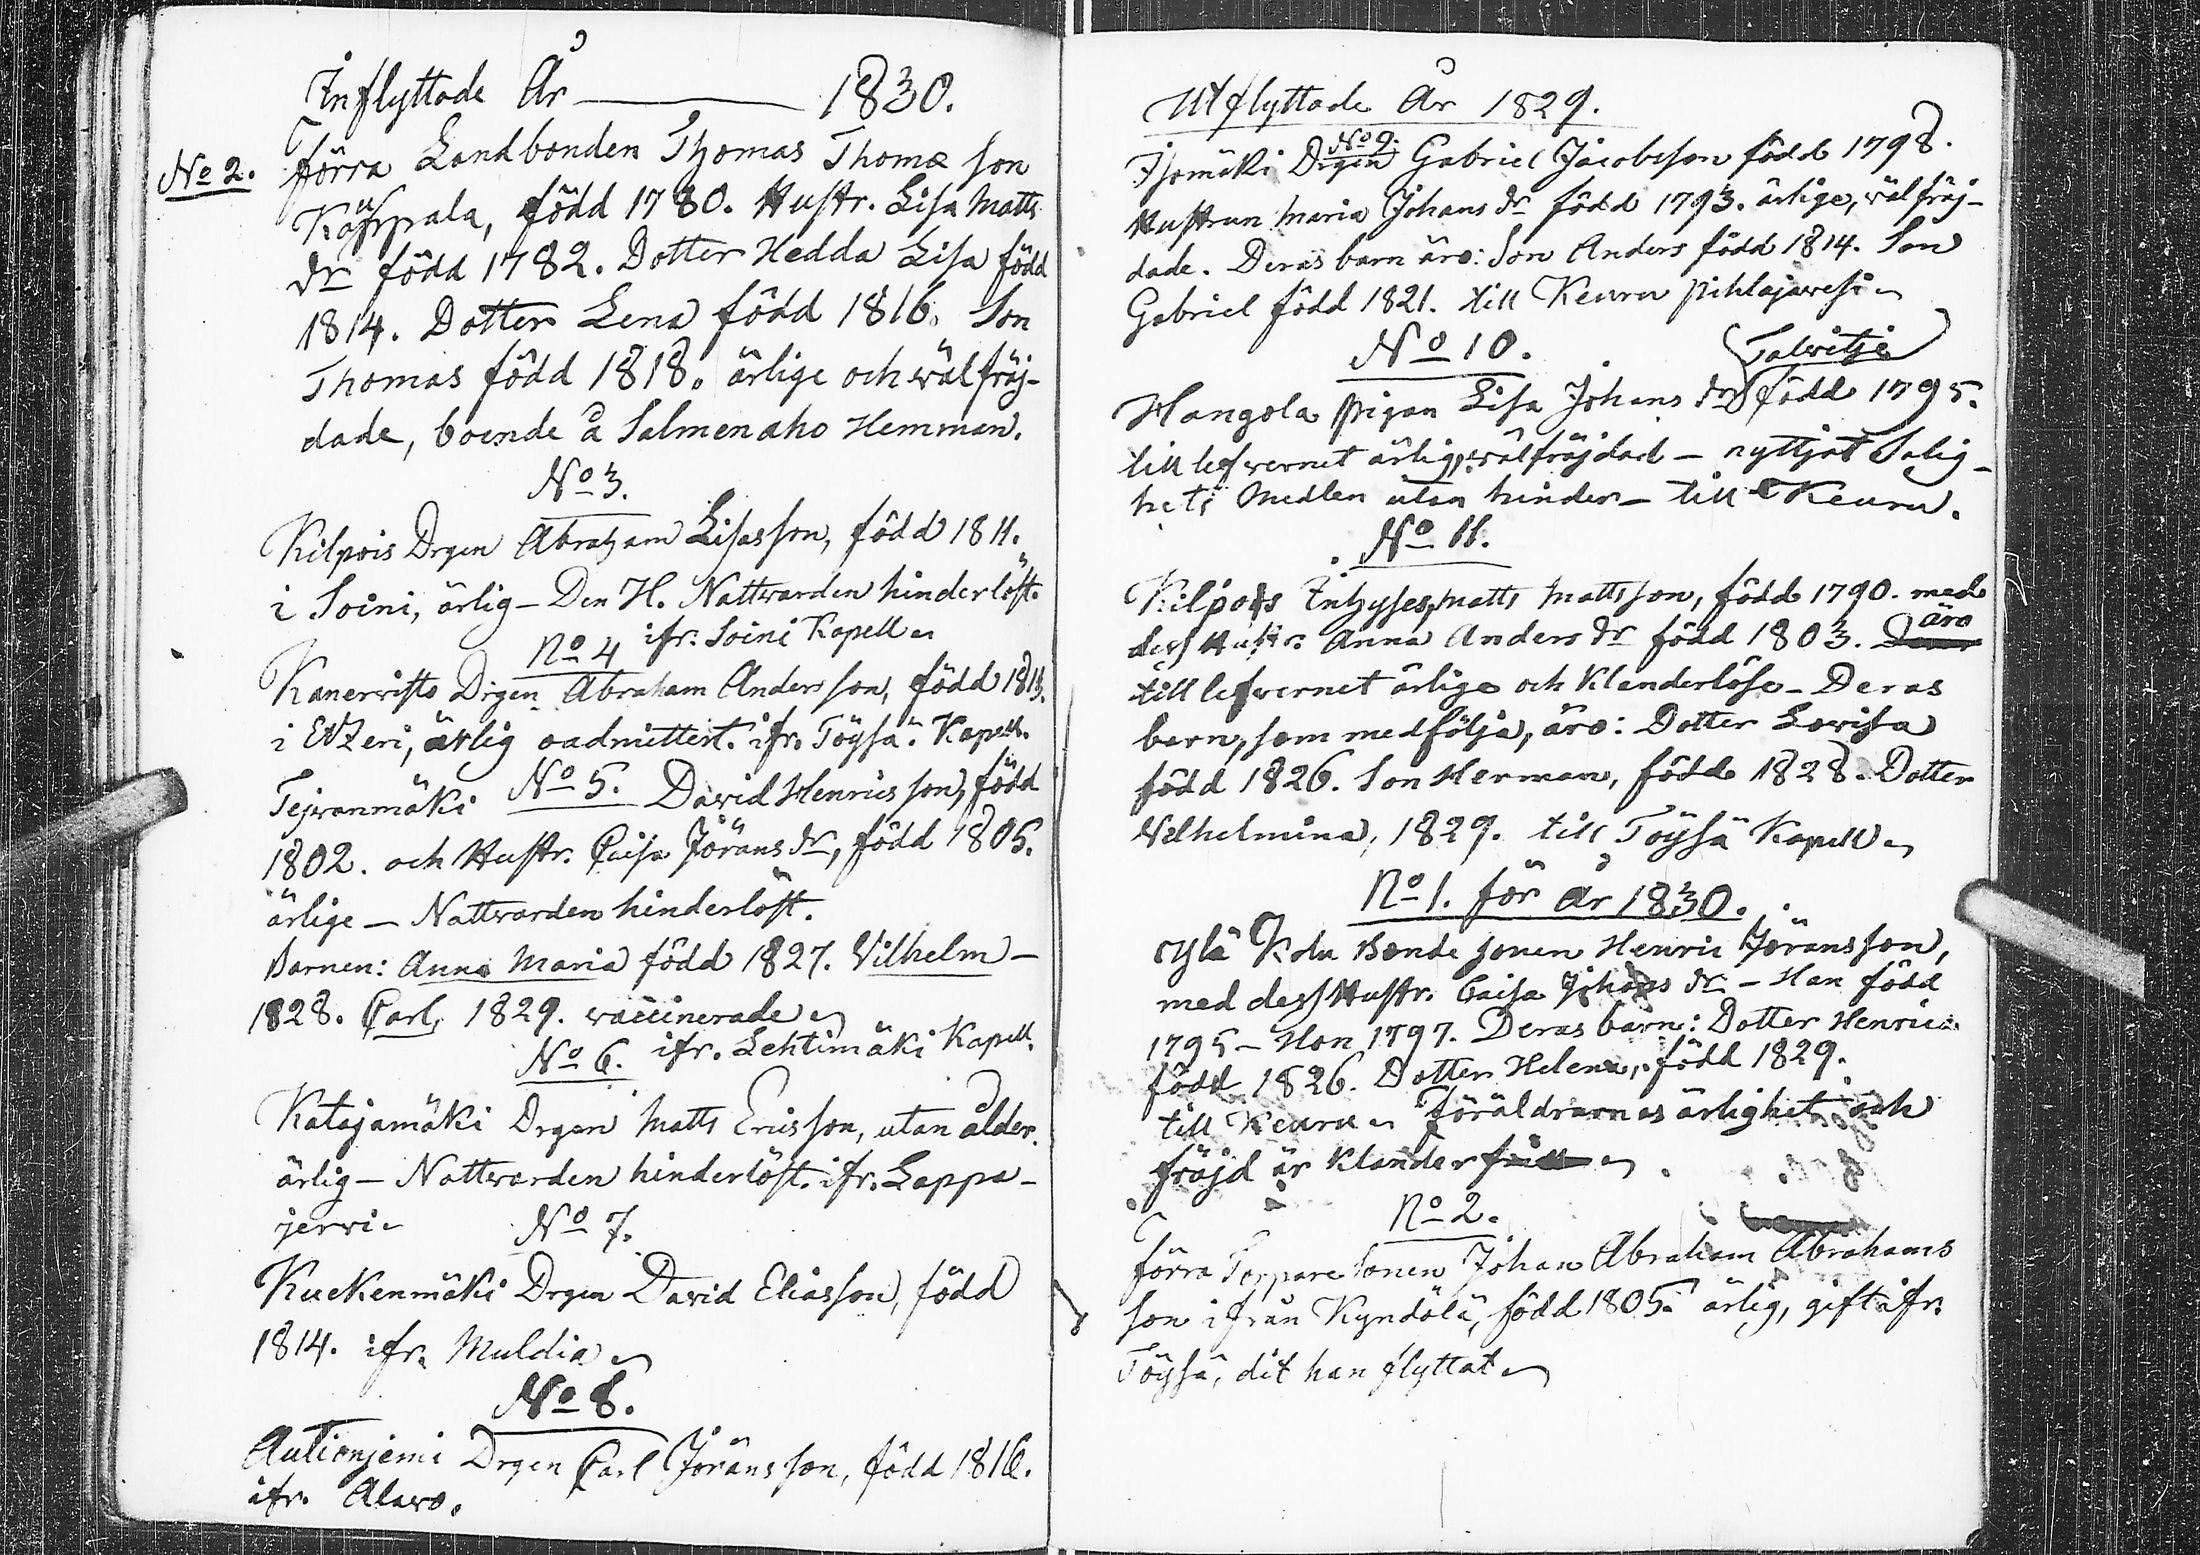 Inflyttade År 1830.
No 2. förra Landbonden Thomas Thomæ son
född 1780. Hustr. Lisa Matts
dr född 1782. Dotter Hedda Lisa född
1814. Dotter Lena född 1816. Son
Thomas född 1818. ärlige och wälfräj-
dade, boende å Salmenaho Hemman.
No 3.
Kilpois Drgen Abraham Lisasson, född 1811.
i Soini, ärlig - Den H. Nattvarden hinderlöst.
ifr. Soini Kapell
No 4
Drgen Abraham Andersson, född
i Etzeri, ärlig oadmittert. ifr. Töysä. Kapell.
No 5.
Tejvanmäki David Henricsson, född
1802. och Hustr. Caisa Jörans dr, född 1805.
ärlige - Nattvarden hinderlöst.
Barnen: Anna Maria född 1827. Vilhelm -
1828. Carl, 1829. vaccinerade
ifr. Lehtimäki Kapell.
No 6.
Katajamäki Drgen Matts Ericsson, utan ålder.
ärlig - Nattvarden hinderlöst. ifr. Lappa-
jervi
No 7.
Kuckenmäki Drgen David Eliasson, född
1814. ifr. Muldia
No 8.
Autionjemi Drgen Carl Jöransson, född 1816.
ifr. Alavo.
Utflyttade År 1829.
No 9.
Isomäki Drgen Gabriel Jacobsson född 1798.
Hustrun Maria Johans dr född 1793. ärlige, välfräj-
dade. Deras barn äro: Son Anders född 1814. Son
Gabriel född 1821. till Keuru pihlajavesi
No 10.
Talvitje
Hangola pigan Lisa Johans dr född 1795.
till lefvernet ärlig, välfräjdad - nyttjat Salig-
hets Medlen utan hinder - till Keuru.
No 11.
Kilpois Inhyses, Matts Mattsson, född 1790. med
dess Hustr. Anna Anders dr född 1803. äro
till lefvernet ärlige och klanderlöse - Deras
barn, som medfölja, äro: Dotter Lovisa
född 1826. Son Herman, född 1828. Dotter
Vilhelmina, 1829. till Töysä Kapell
No 1. för år 1830.
Ylä Kolu Bonde sonen Henric Jöransson,
med dess Hustr. Caisa Johans dr - Han född
1795 - Hon 1797. Deras barn: Dotter Henrica
född 1826. Dotter Helena, född 1829.
till Keuru Föräldrarnas ärlighet och
fräjd är klanderfri
No 2.
förra Torpare Sonen Johan Abraham Abrahams
son ifrån Kyndölä, född 1805. ärlig, gift ifr.
Töysä, dit han flyttat